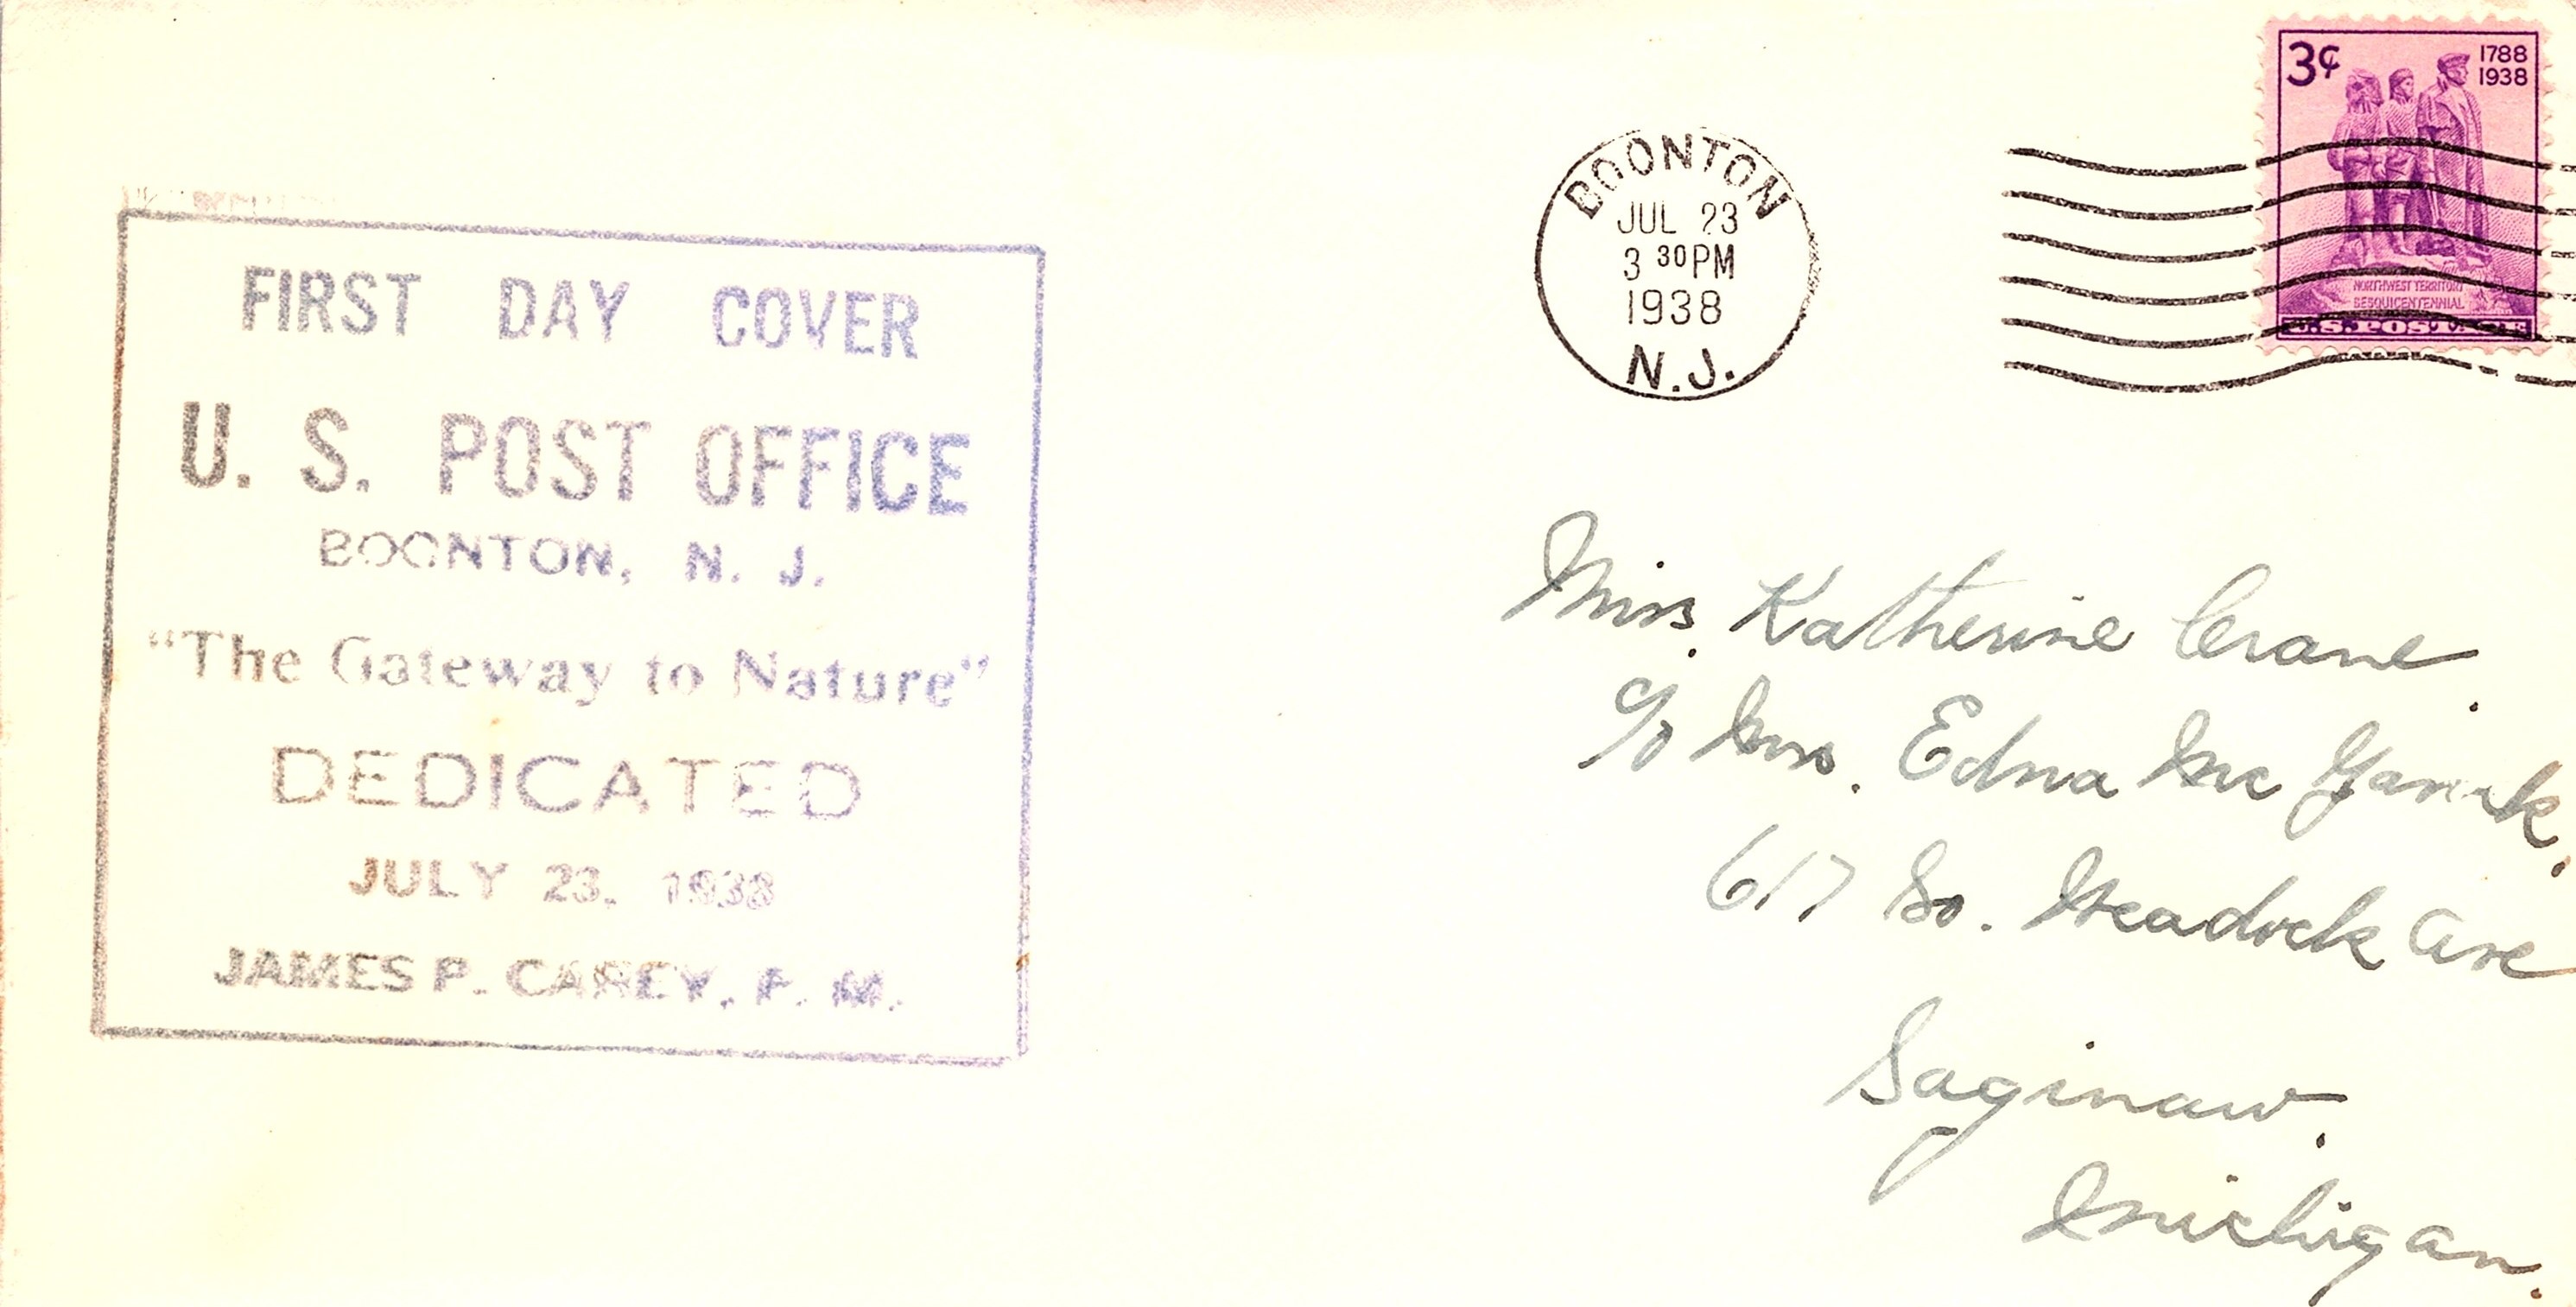 FIRST DAY COVER
U. S. POST OFFICE
BOONTON, N. J.
"The Gateway to Nature"
DEDICATED
JULY 23, 1938
JAMES P. CAREY, P. M.
BOONTON
JUL 23
3 30PM
1938
N.J.
3¢
1788
1938
NORTHWEST TERRITORY
SESQUICENTENNIAL
U.S. POSTAGE
Miss. Katherine Crane.
c/o Mrs. Edna Mc
617 So. Meadock Ave
Saginaw.
Michigan.